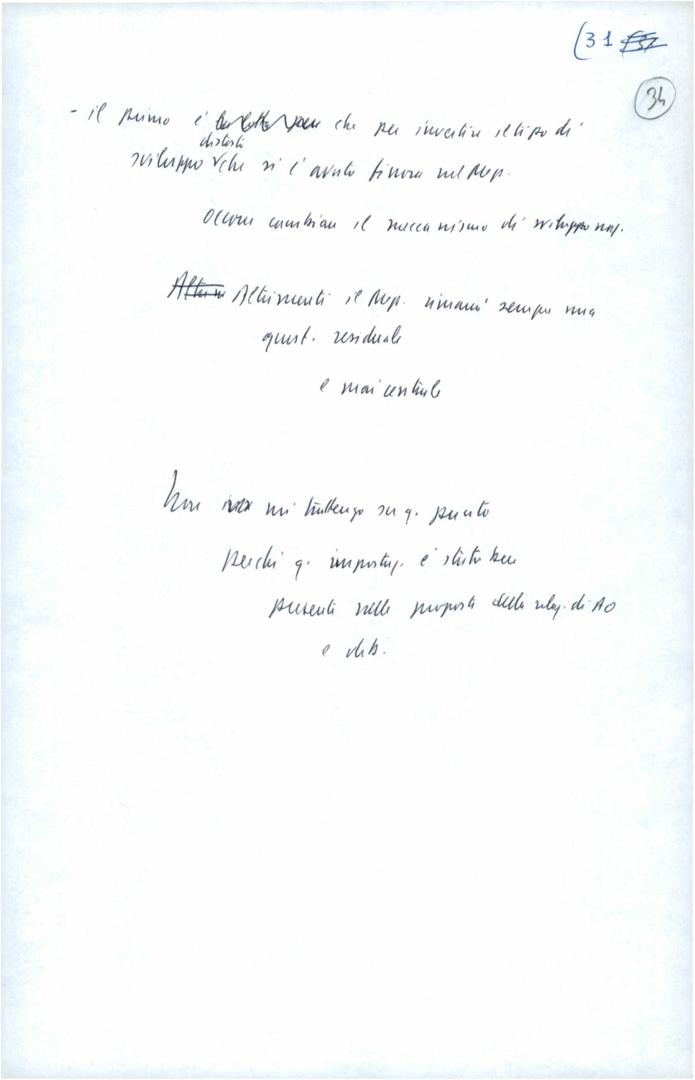 (31
34
- il primo è che per invertire il tipo di
distorto
sviluppo che si è avuto finora nel Mezz.
Occorre cambiare il meccanismo di sviluppo naz.
Altrimenti il Mezz. rimarrà sempre una
quest. residuale
e mai centrale
Non mi trattengo su q. punto
perché q. impostaz. è stata ben
presente nelle proposte della relaz. di AO
e dib.